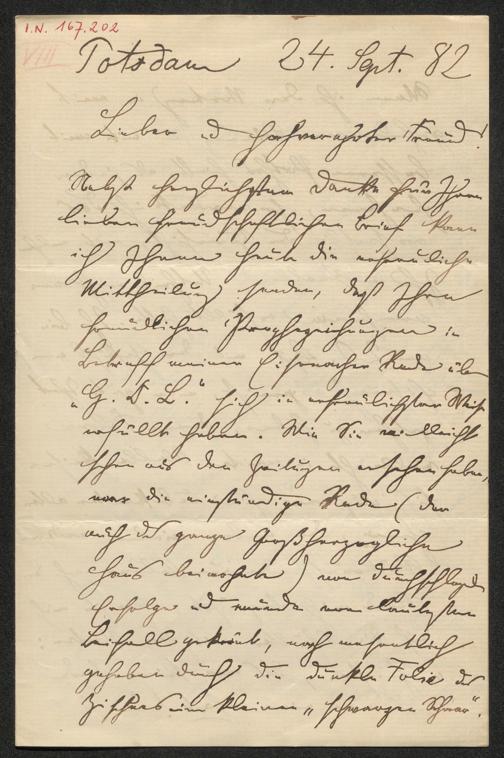 I.N. 167.202
VIII
Potsdam 24. Sept. 82
Lieber u hochverehrter Freund!
Nebst herzlichstem Danke für Ihren
lieben freundschaftlichen Brief kann
ich Ihnen heute die erfreuliche
Mittheilung senden, daß Ihre
freundlichen Prophezeihungen in
Betreff meiner Eisenacher Rede über
„G. D. L." sich in erfreulichster Weise
erfüllt haben. Wie Sie vielleicht
schon aus den Zeitungen ersehen haben,
war die einstündige Rede (der
auch das ganze Großherzogliche
Haus beiwohnte) von durchschlagdem
Erfolge und wurde vom lautesten
Beifall gekrönt, noch wesentlich
gehoben durch die dunkle Folie des
Zischens einer kleinen „schwarzen Schaar".